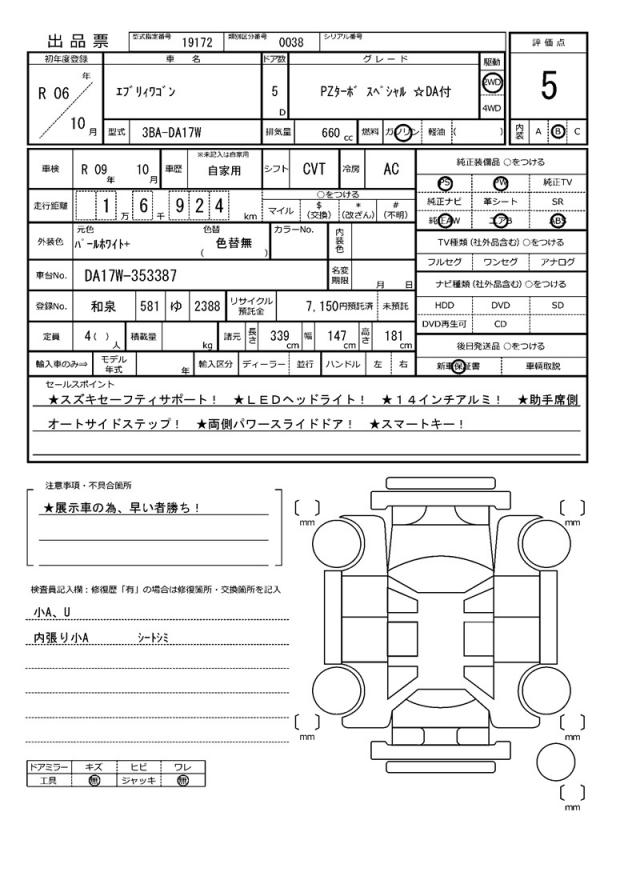 出品票 型式指定番号 19172 類別区分番号 0038 シリアル番号
評価点
5
内装 A B C
初年度登録 車名 ドア数 グレード 駆動
R 06 年 10 月
ｴﾌﾞﾘｨﾜｺﾞﾝ 5 D PZﾀｰﾎﾞ ｽﾍﾟｼｬﾙ ☆DA付 2WD
4WD
型式 3BA-DA17W 排気量 660 cc 燃料 ガソリン 軽油 ( )
車検 R 09 年 10 月 車歴 ※未記入は自家用 自家用 シフト CVT 冷房 AC
走行距離 1 万 6 千 9 2 4 km
○をつける
マイル $ (交換) * (改ざん) # (不明)
外装色 元色 ﾊﾟｰﾙﾎﾜｲﾄ+ 色替 ( 色替無 ) カラーNo. 内装色
車台No. DA17W-353387 名変期限 月 日
登録No. 和泉 581 ゆ 2388 リサイクル預託金 7,150円預託済 未預託
定員 4( ) 人 積載量 kg 諸元 長さ 339 cm 幅 147 cm 高さ 181 cm
輸入車のみ⇒ モデル年式 年 輸入区分 ディーラー 並行 ハンドル 左 右
純正装備品 ○をつける
PS PW 純正TV
純正ナビ 革シート SR
純正AW エアB ABS
TV種類 (社外品含む) ○をつける
フルセグ ワンセグ アナログ
ナビ種類 (社外品含む) ○をつける
HDD DVD SD
DVD再生可 CD
後日発送品 ○をつける
新車保証書 車輌取説
セールスポイント
★スズキセーフティサポート！ ★ＬＥＤヘッドライト！ ★１４インチアルミ！ ★助手席側
オートサイドステップ！ ★両側パワースライドドア！ ★スマートキー！
注意事項・不具合箇所
★展示車の為、早い者勝ち！
検査員記入欄：修復歴「有」の場合は修復箇所・交換箇所を記入
小A、U
内張り小A ｼｰﾄｼﾐ
ドアミラー キズ ヒビ ワレ
工具 無 ジャッキ 無
[ ] mm
[ ] mm
[ ] mm
[ ] mm
[ ] mm